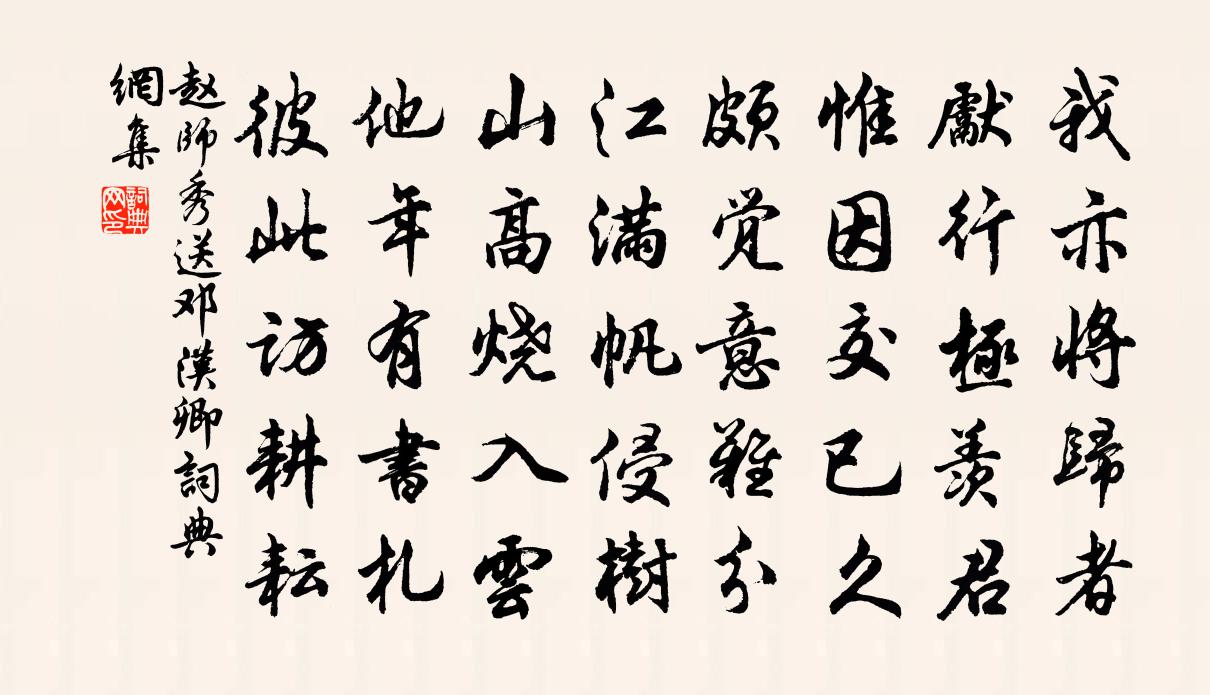 我亦將歸者
獻行極羨君
惟因交已久
頗觉意難分
江滿帆侵樹
山高烧入雲
他年有書札
彼此访耕耘
赵師秀送邓漢卿詞典
網集
詞典网印